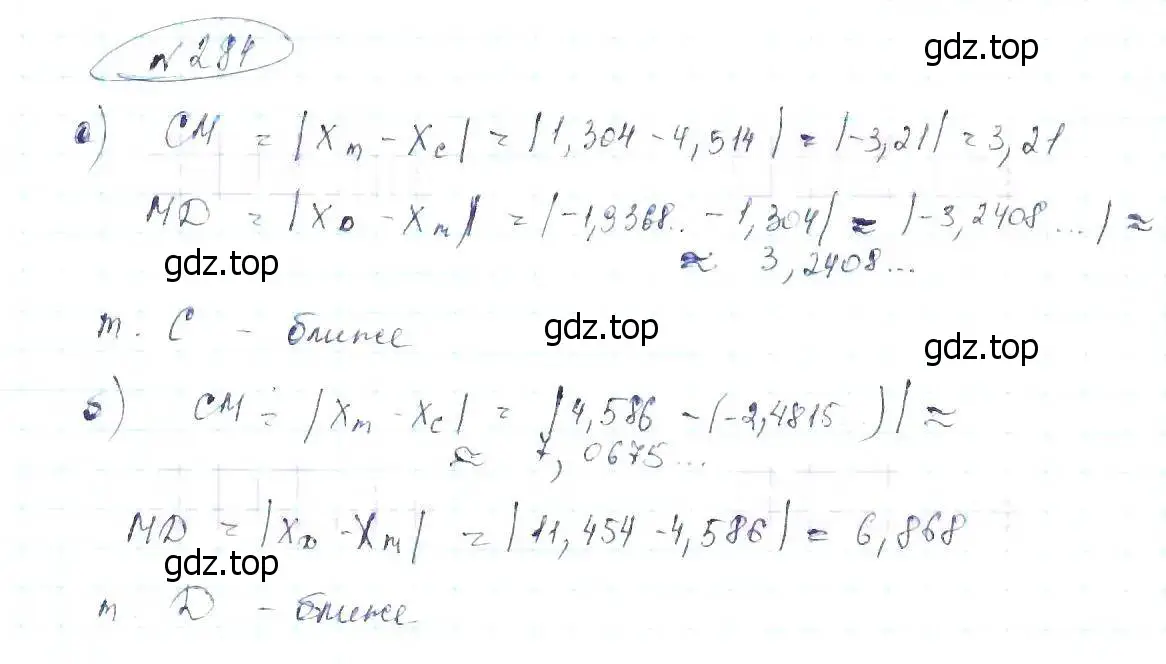 № 284
gdz.top
а) CM = |Xm - Xc| = |1,304 - 4,514| = |-3,21| = 3,21
MD = |XD - Xm| = |-1,9368.. - 1,304| ≈ |-3,2408...| ≈
≈ 3,2408...
gdz.top
т. C - ближе
gdz.top
gdz.top
б) CM = |Xm - Xc| = |4,586 - (-2,4815 )| ≈
≈ 7,0675...
MD = |XD - Xm| = |11,454 - 4,586| = 6,868
gdz.top
т. D - ближе